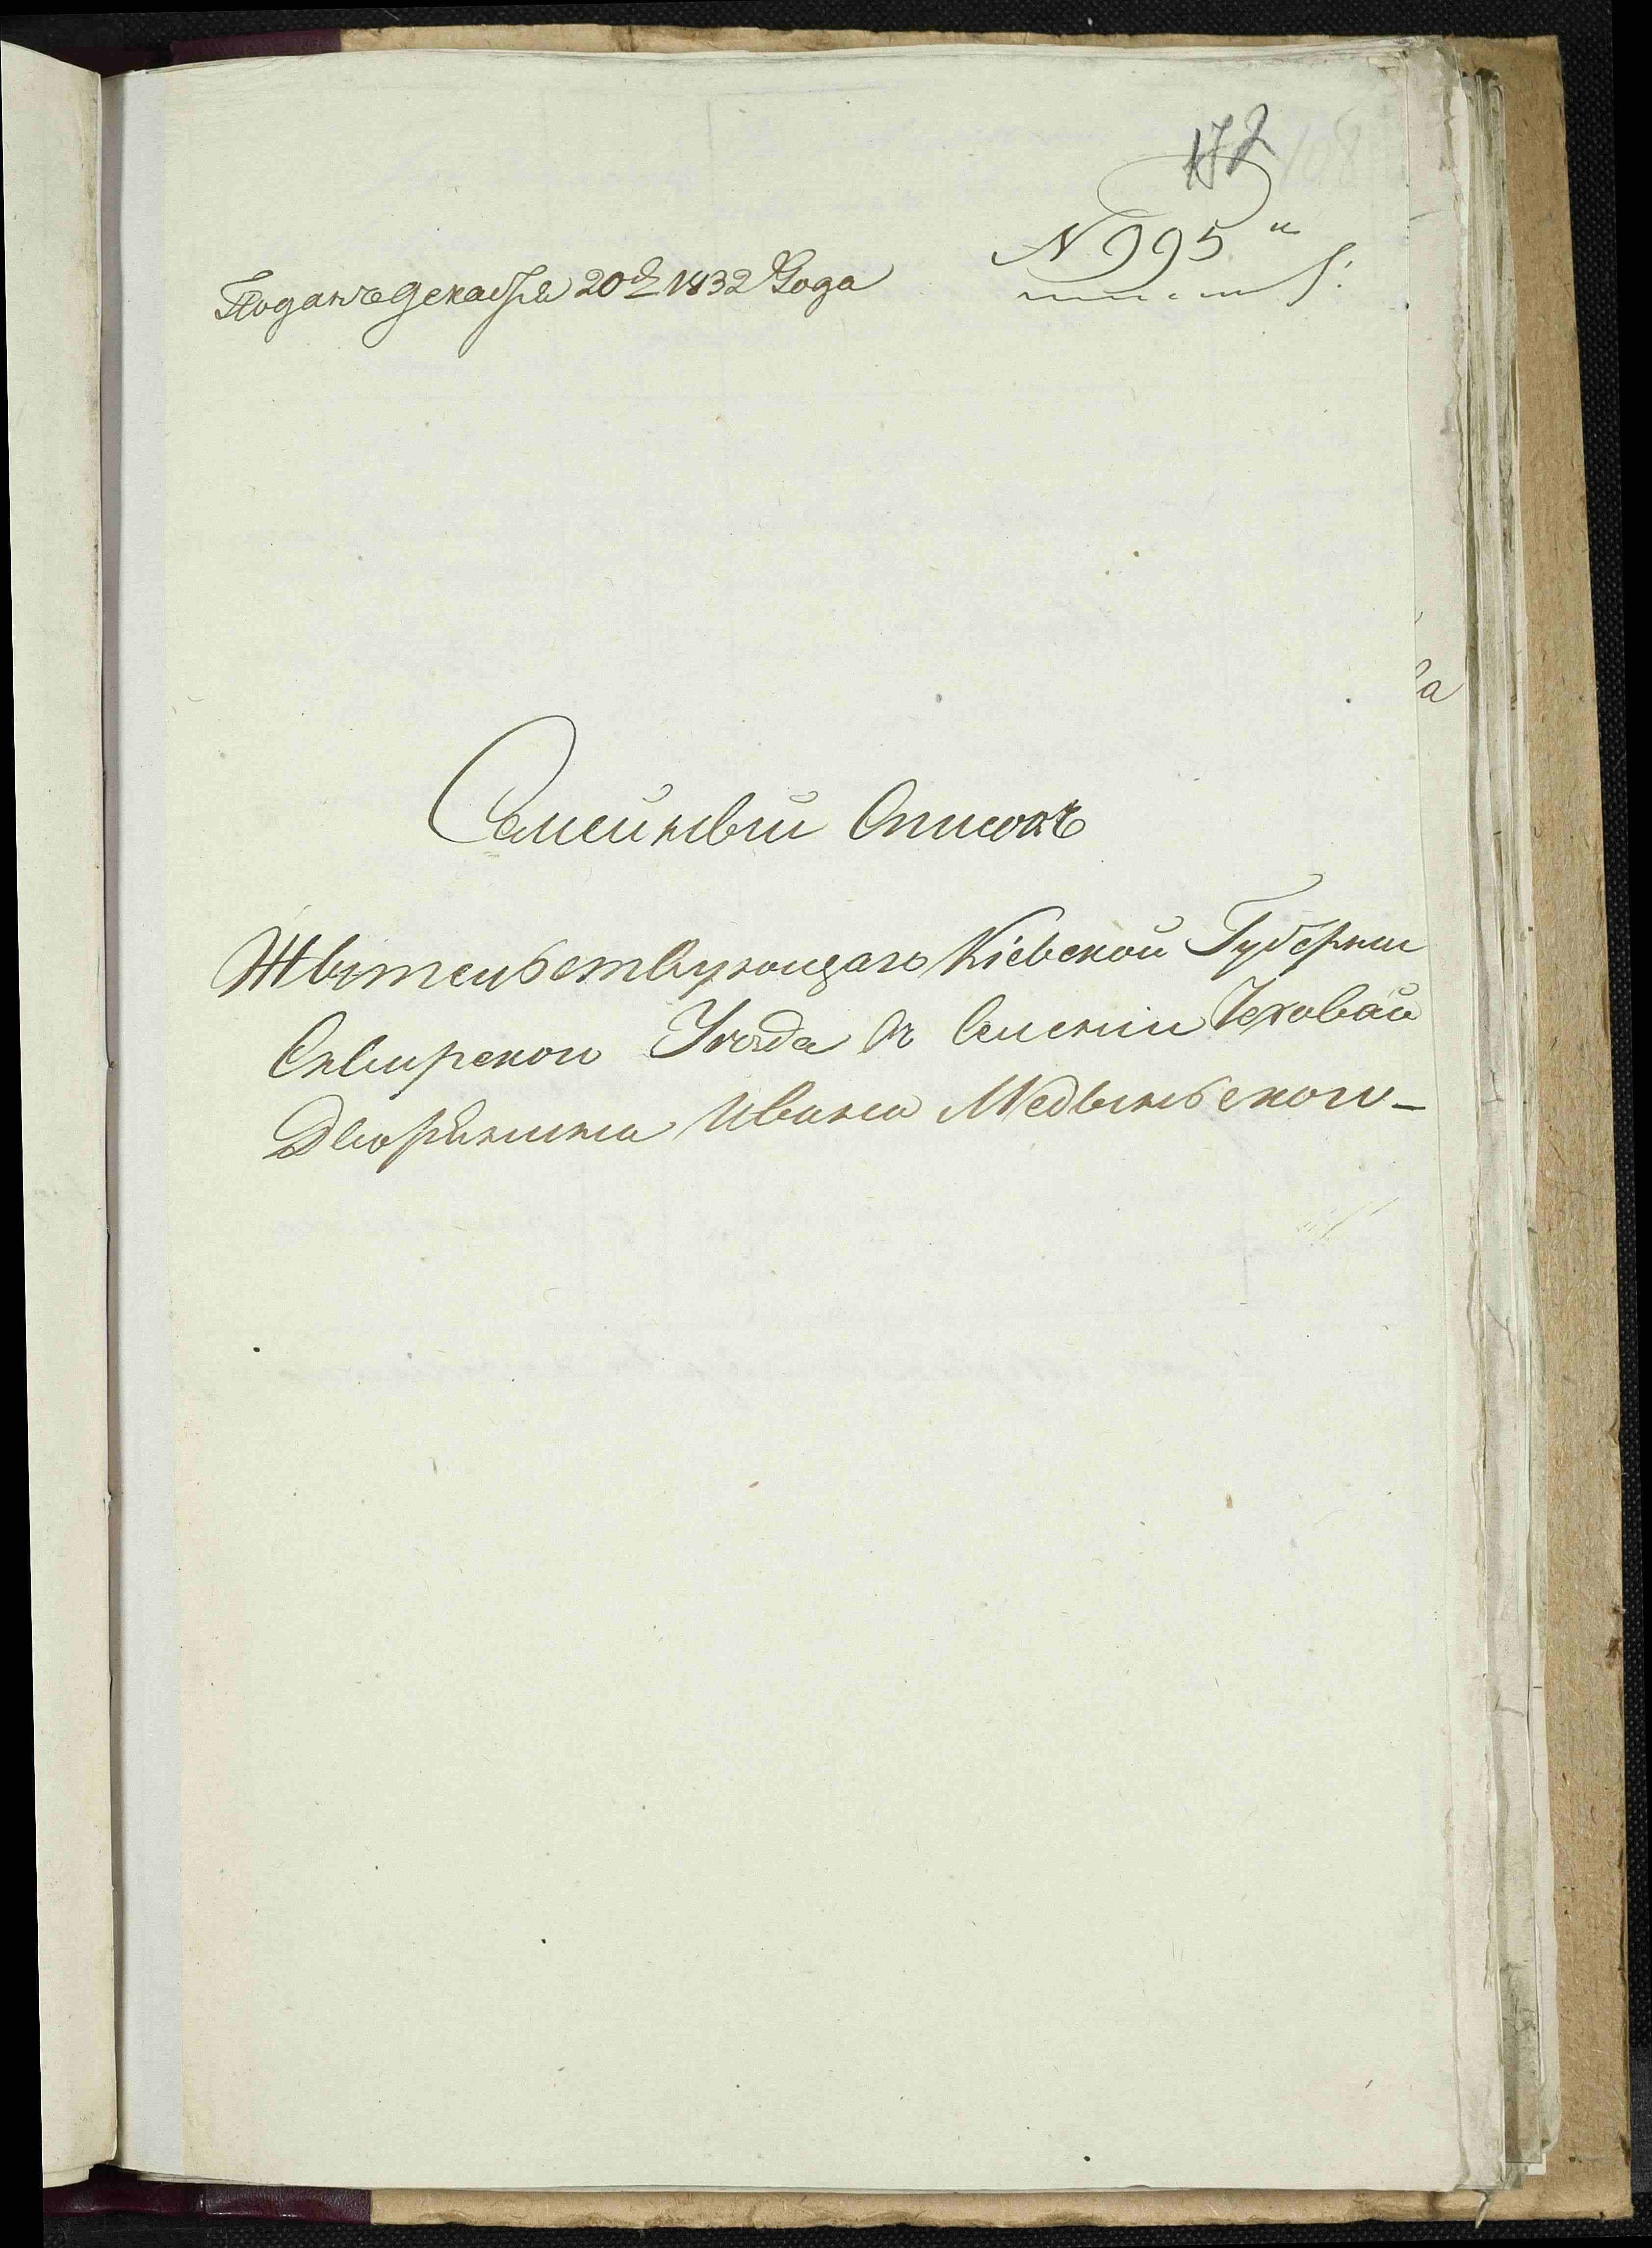 172 108
N 995
Поданъ Декабря 20д 1832 Года
Семейный Списокъ
Жытельствующаго Кіевской Губернии
Сквирского Уезда въ Селении Чеховой
Дворянина Ивана Медыньского –